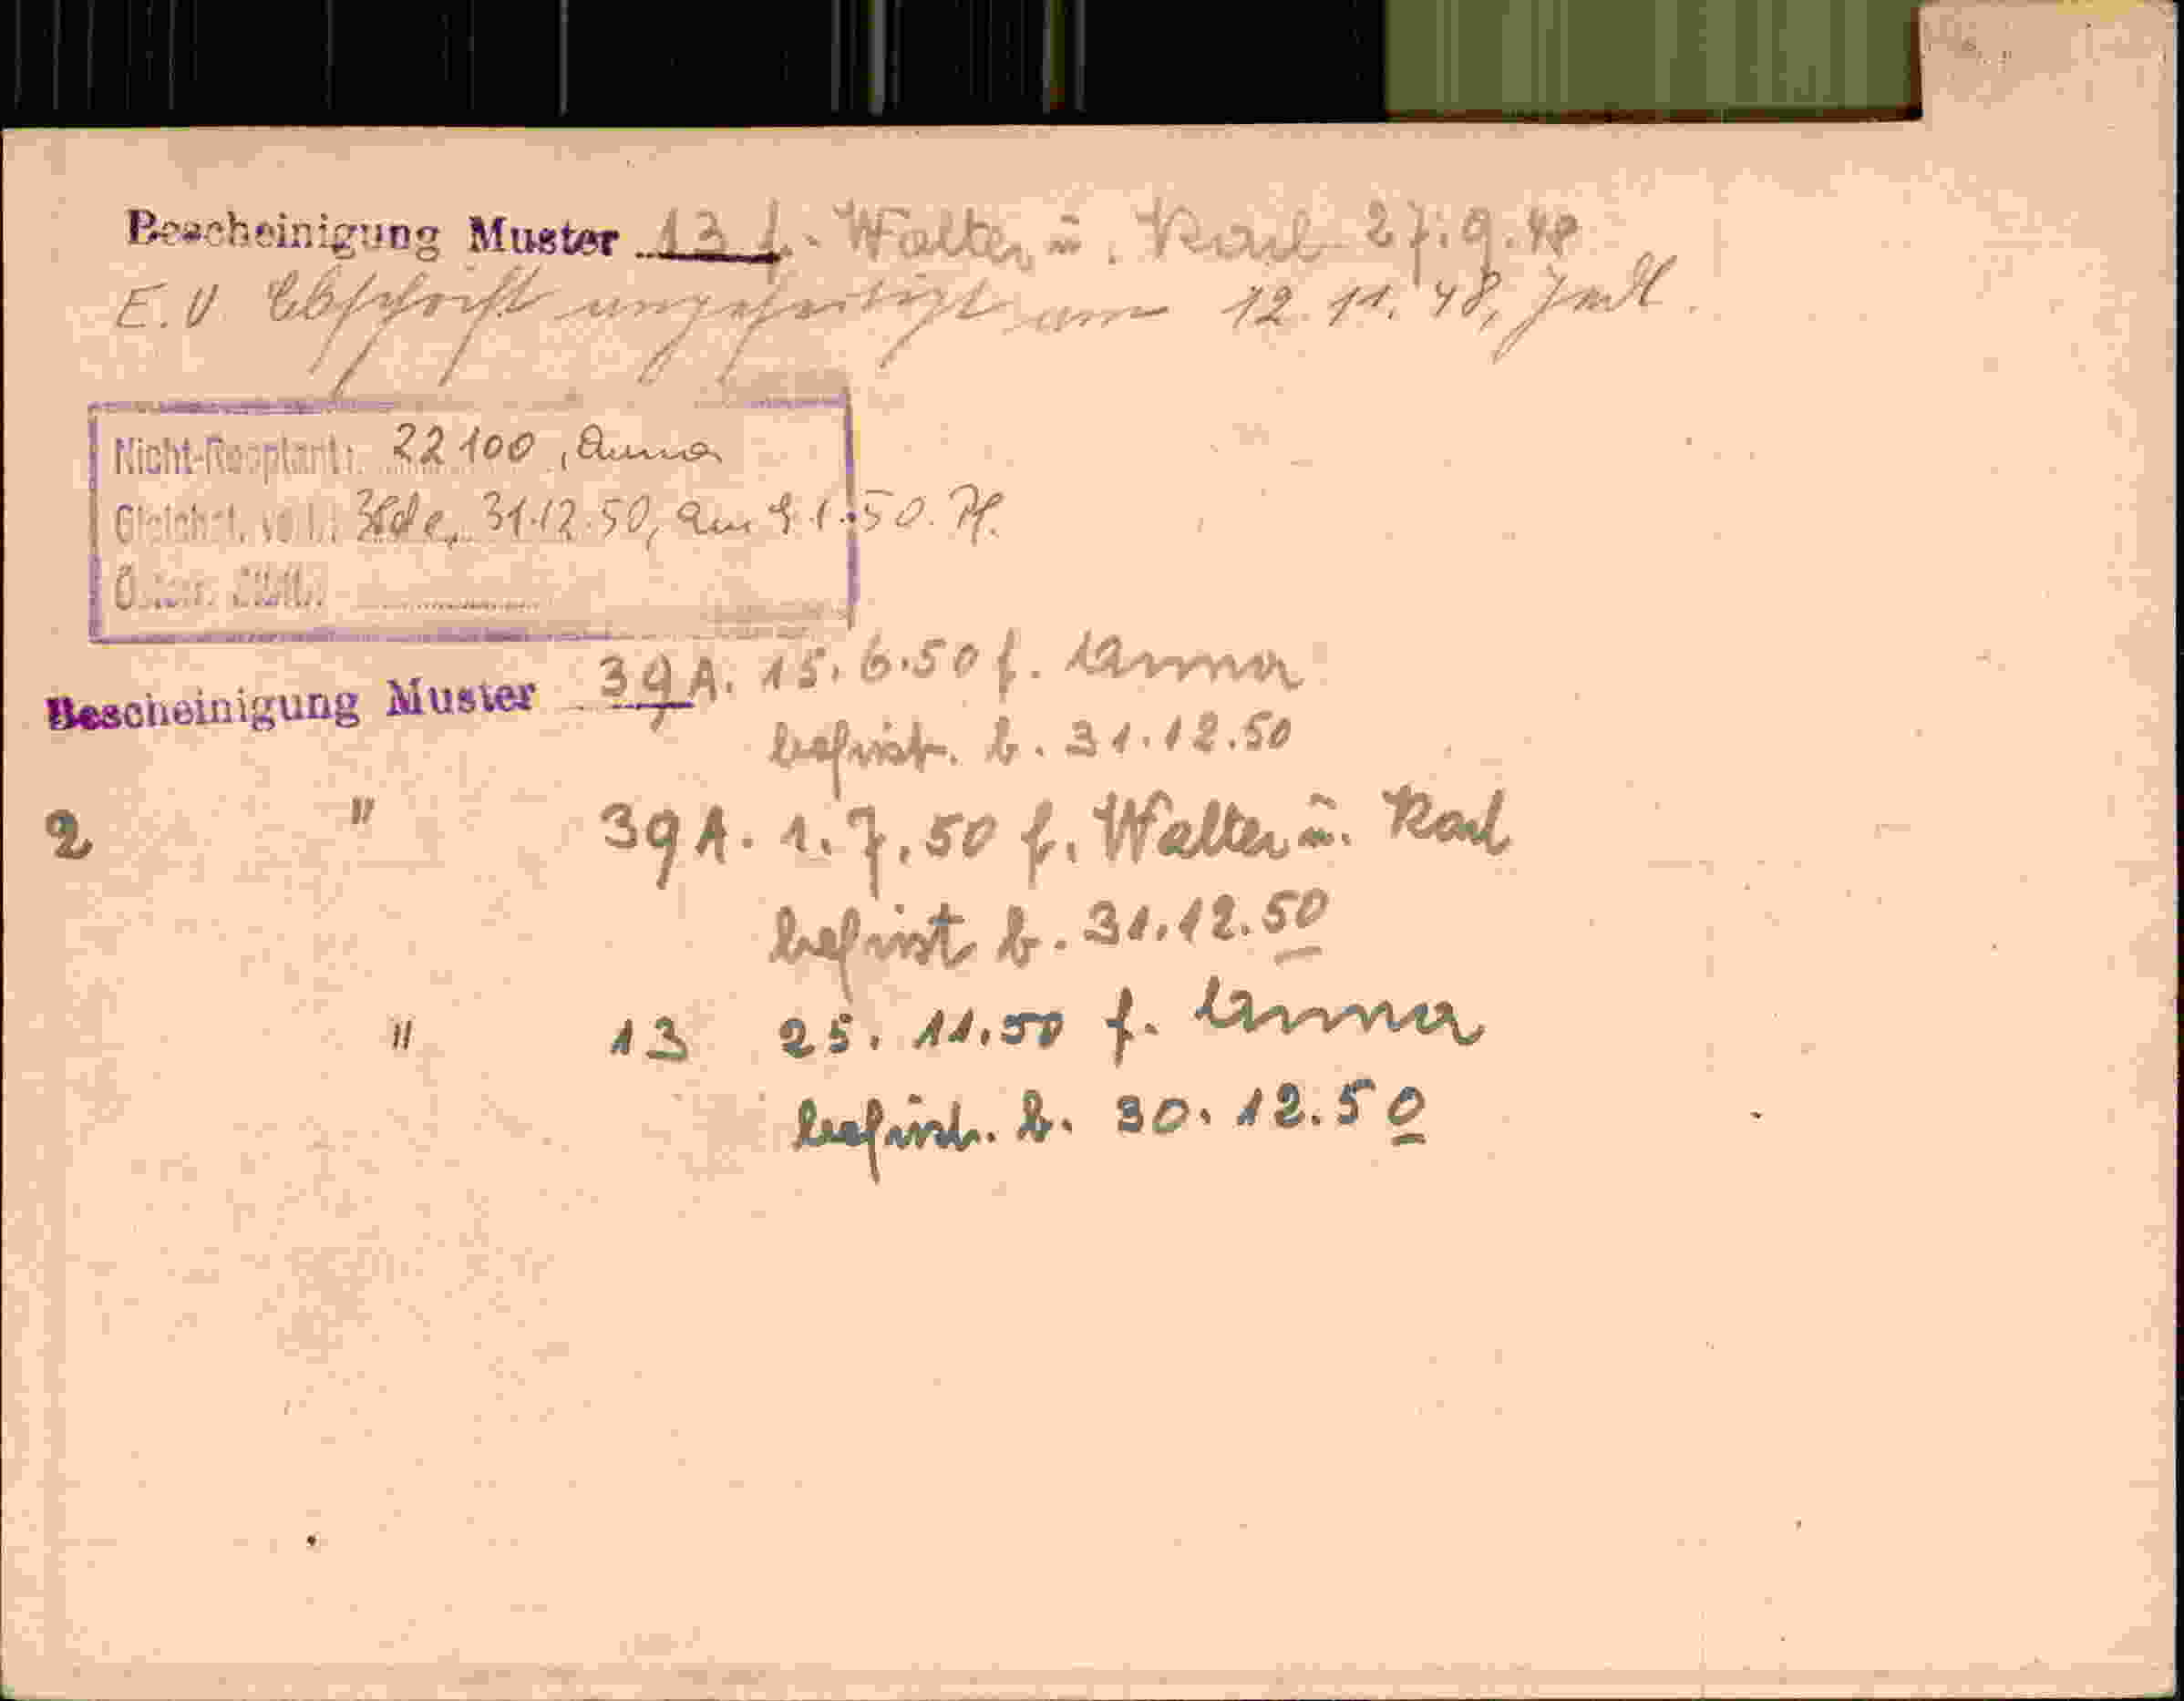 Bescheinigung Muster 13 f. Walter u. Karl 27.9.48
E.V. Abschrift angefertigt am 12.11.48,
Nicht-Rooptant: 22100, Anna
Gleichst. vorl.: 31.12.50, am 9.1.50. Pf.
Österr. Stbü.:
Bescheinigung Muster 39 A. 15.6.50 f. Anna
befrist. b. 31.12.50
2 " 39 A. 1.7.50 f. Walter u. Karl
befrist b. 31.12.50
" 13 25.11.50 f. Anna
befrist. b. 30.12.50